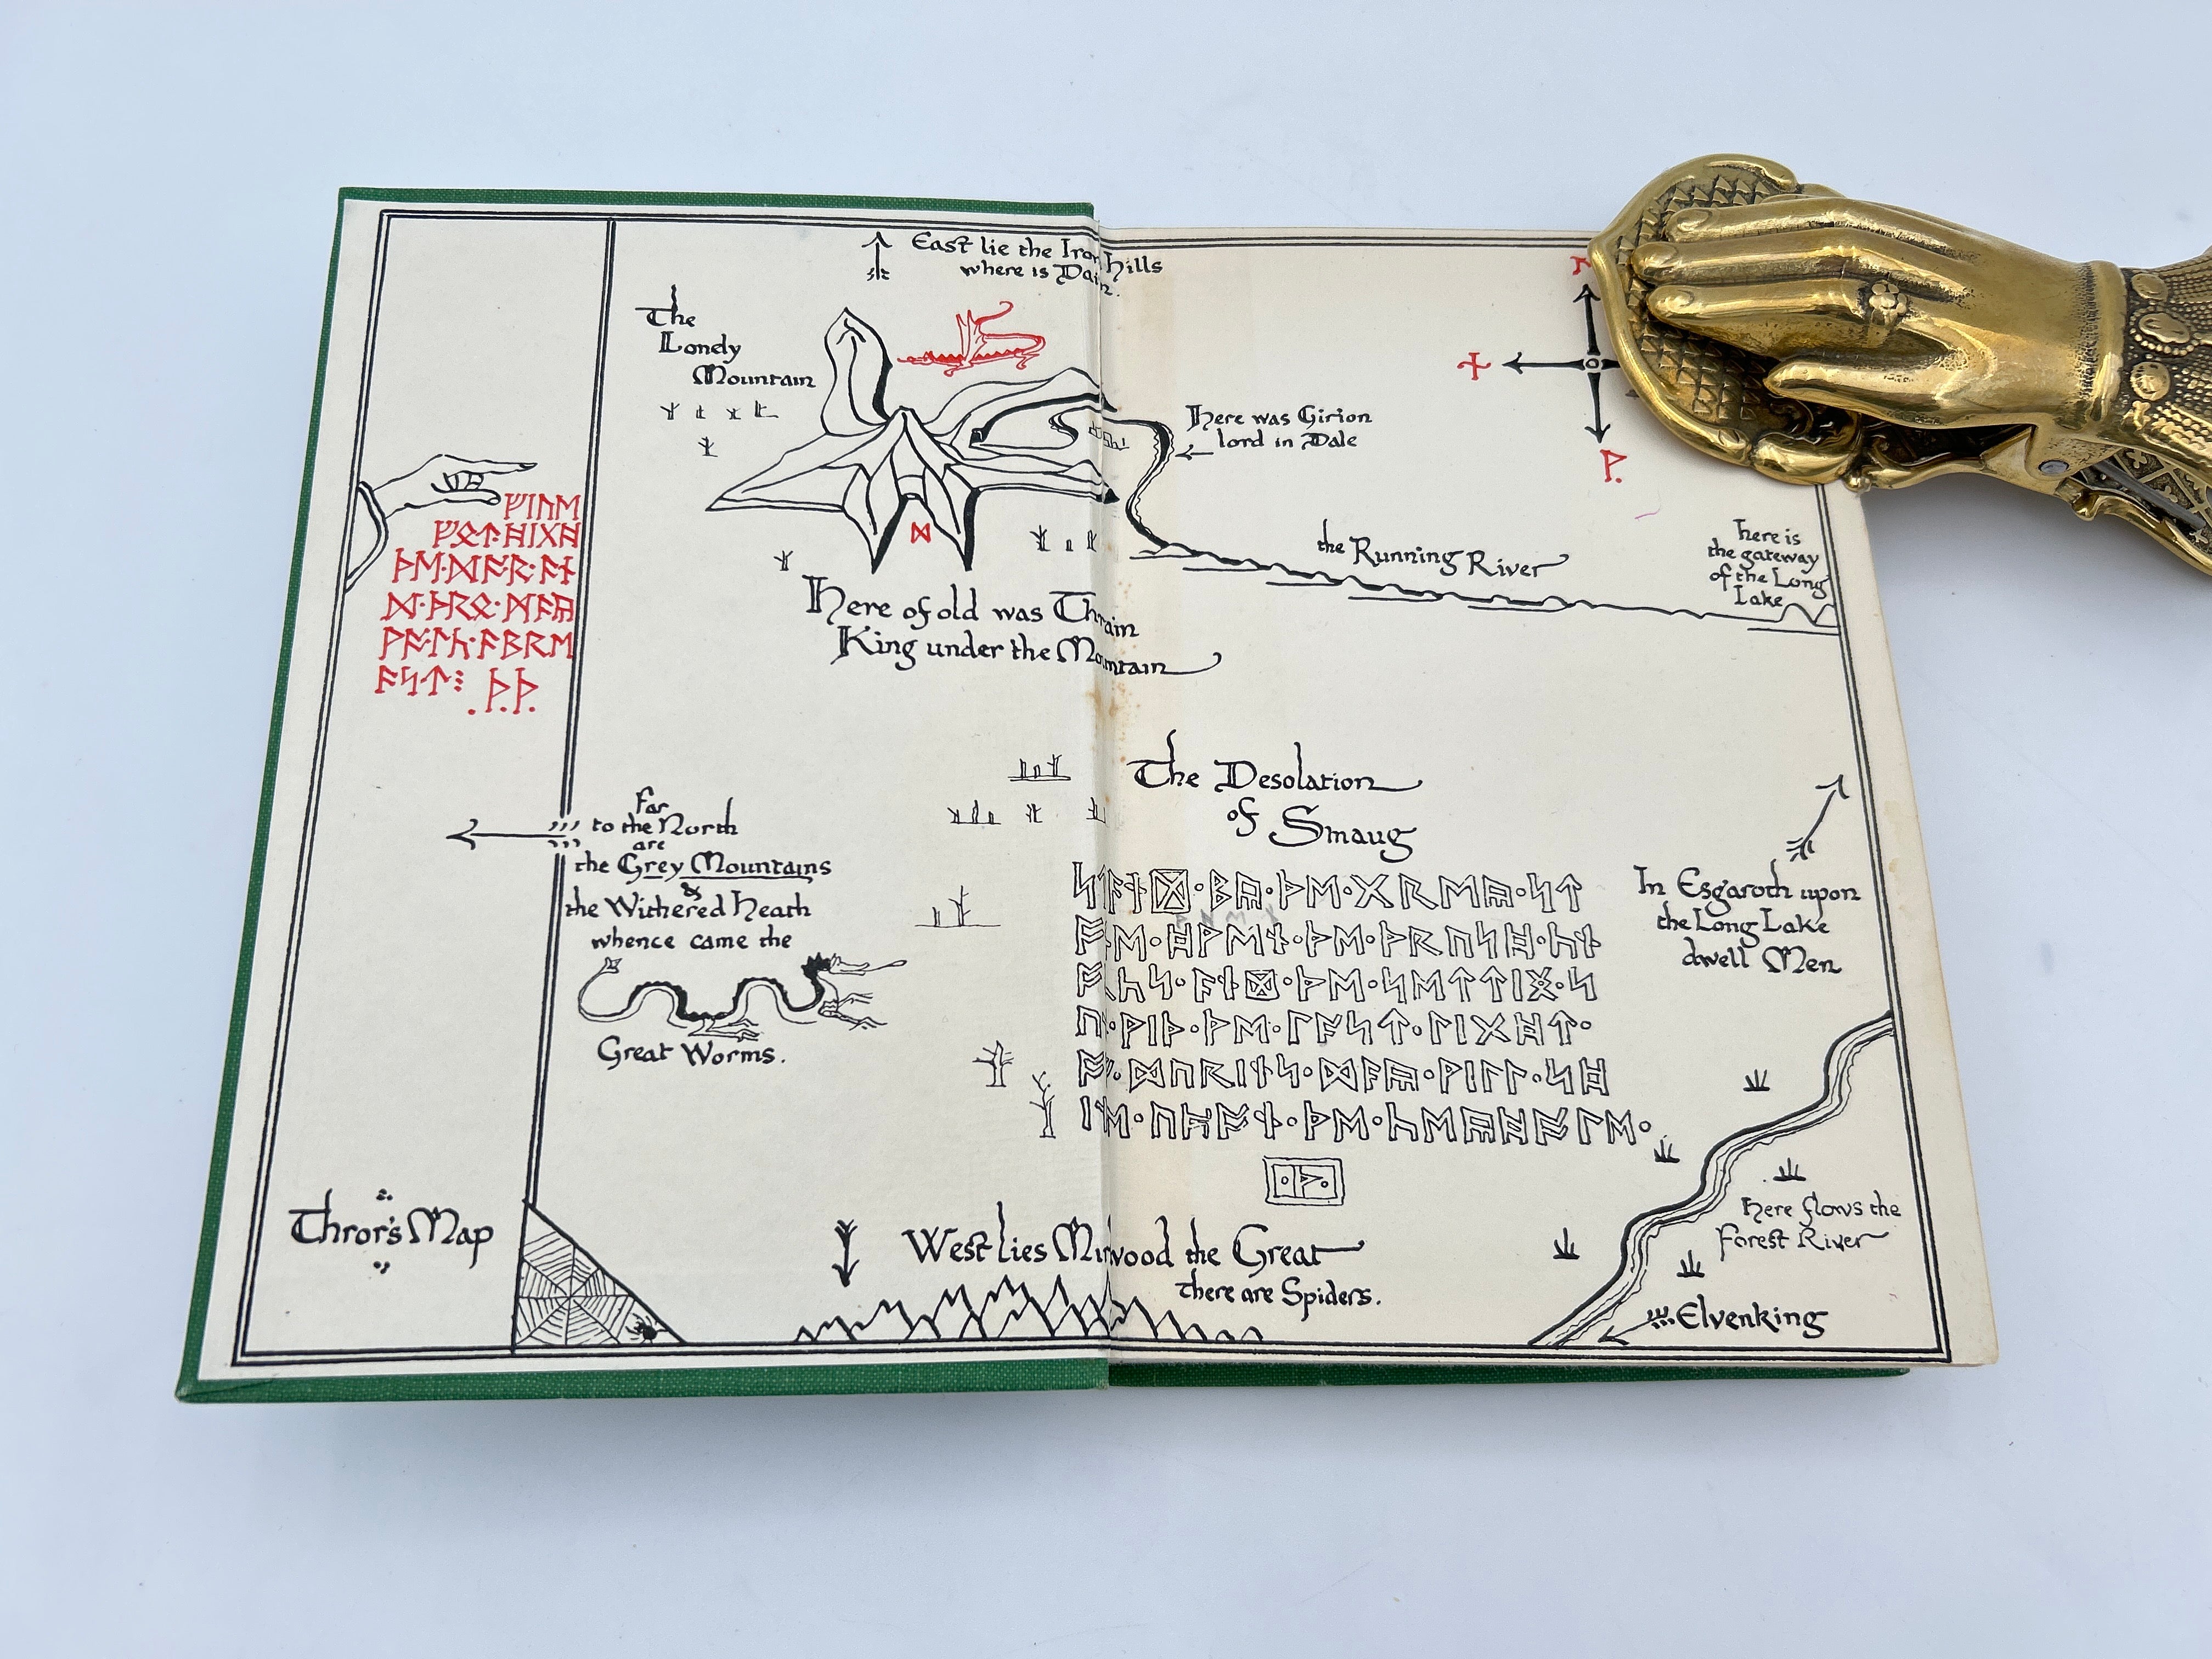 East lie the Iron Hills
where is Dain.
The
Lonely
Mountain
Here was Girion
lord in Dale
ᚾ
ᚹ.
ᚠᛁᚢᛖ
ᚠᛟᛏ·ᚻᛁᚷᚻ
ᚦᛖ·ᛞᚩᚱ·ᚫᚾ
ᛞ·ᚦᚱᛟ·ᛗᚫᚣ
ᚹᚫᛚᚳ·ᚫᛒᚱᛖ
ᚫᛋᛏ⁝ .ᚦ.ᚦ.
ᛞ
the Running River
Here is
the gateway
of the Long
Lake
Here of old was Thrain
King under the Mountain
The Desolation
of Smaug
far
to the North
are
the Grey Mountains
&
the Withered Heath
whence came the
Great Worms.
ᛋᛏᚫᚾᛞ·ᛒᚣ·ᚦᛖ·ᚷᚱᛖᚣ·ᛋᛏ
ᚩᚾᛖ·ᚻᚹᛖᚾ·ᚦᛖ·ᚦᚱᚢᛋᚻ·ᚳᚾ
ᚩᚳᛋ·ᚫᚾᛞ·ᚦᛖ·ᛋᛖᛏᛏᛁᛝ·ᛋ
ᚢᚾ·ᚹᛁᚦ·ᚦᛖ·ᛚᚫᛋᛏ·ᛚᛁᚷᚻᛏ·
ᚩᚠ·ᛞᚢᚱᛁᚾᛋ·ᛞᚫᚣ·ᚹᛁᛚᛚ·ᛋᚻ
ᛁᚾᛖ·ᚢᛈᚩᚾ·ᚦᛖ·ᚳᛖᚣᚻᚩᛚᛖ·
·ᚦ·
In Esgaroth upon
the Long Lake
dwell Men
Thror's Map
West lies Mirkwood the Great
there are Spiders.
Here flows the
Forest River
Elvenking